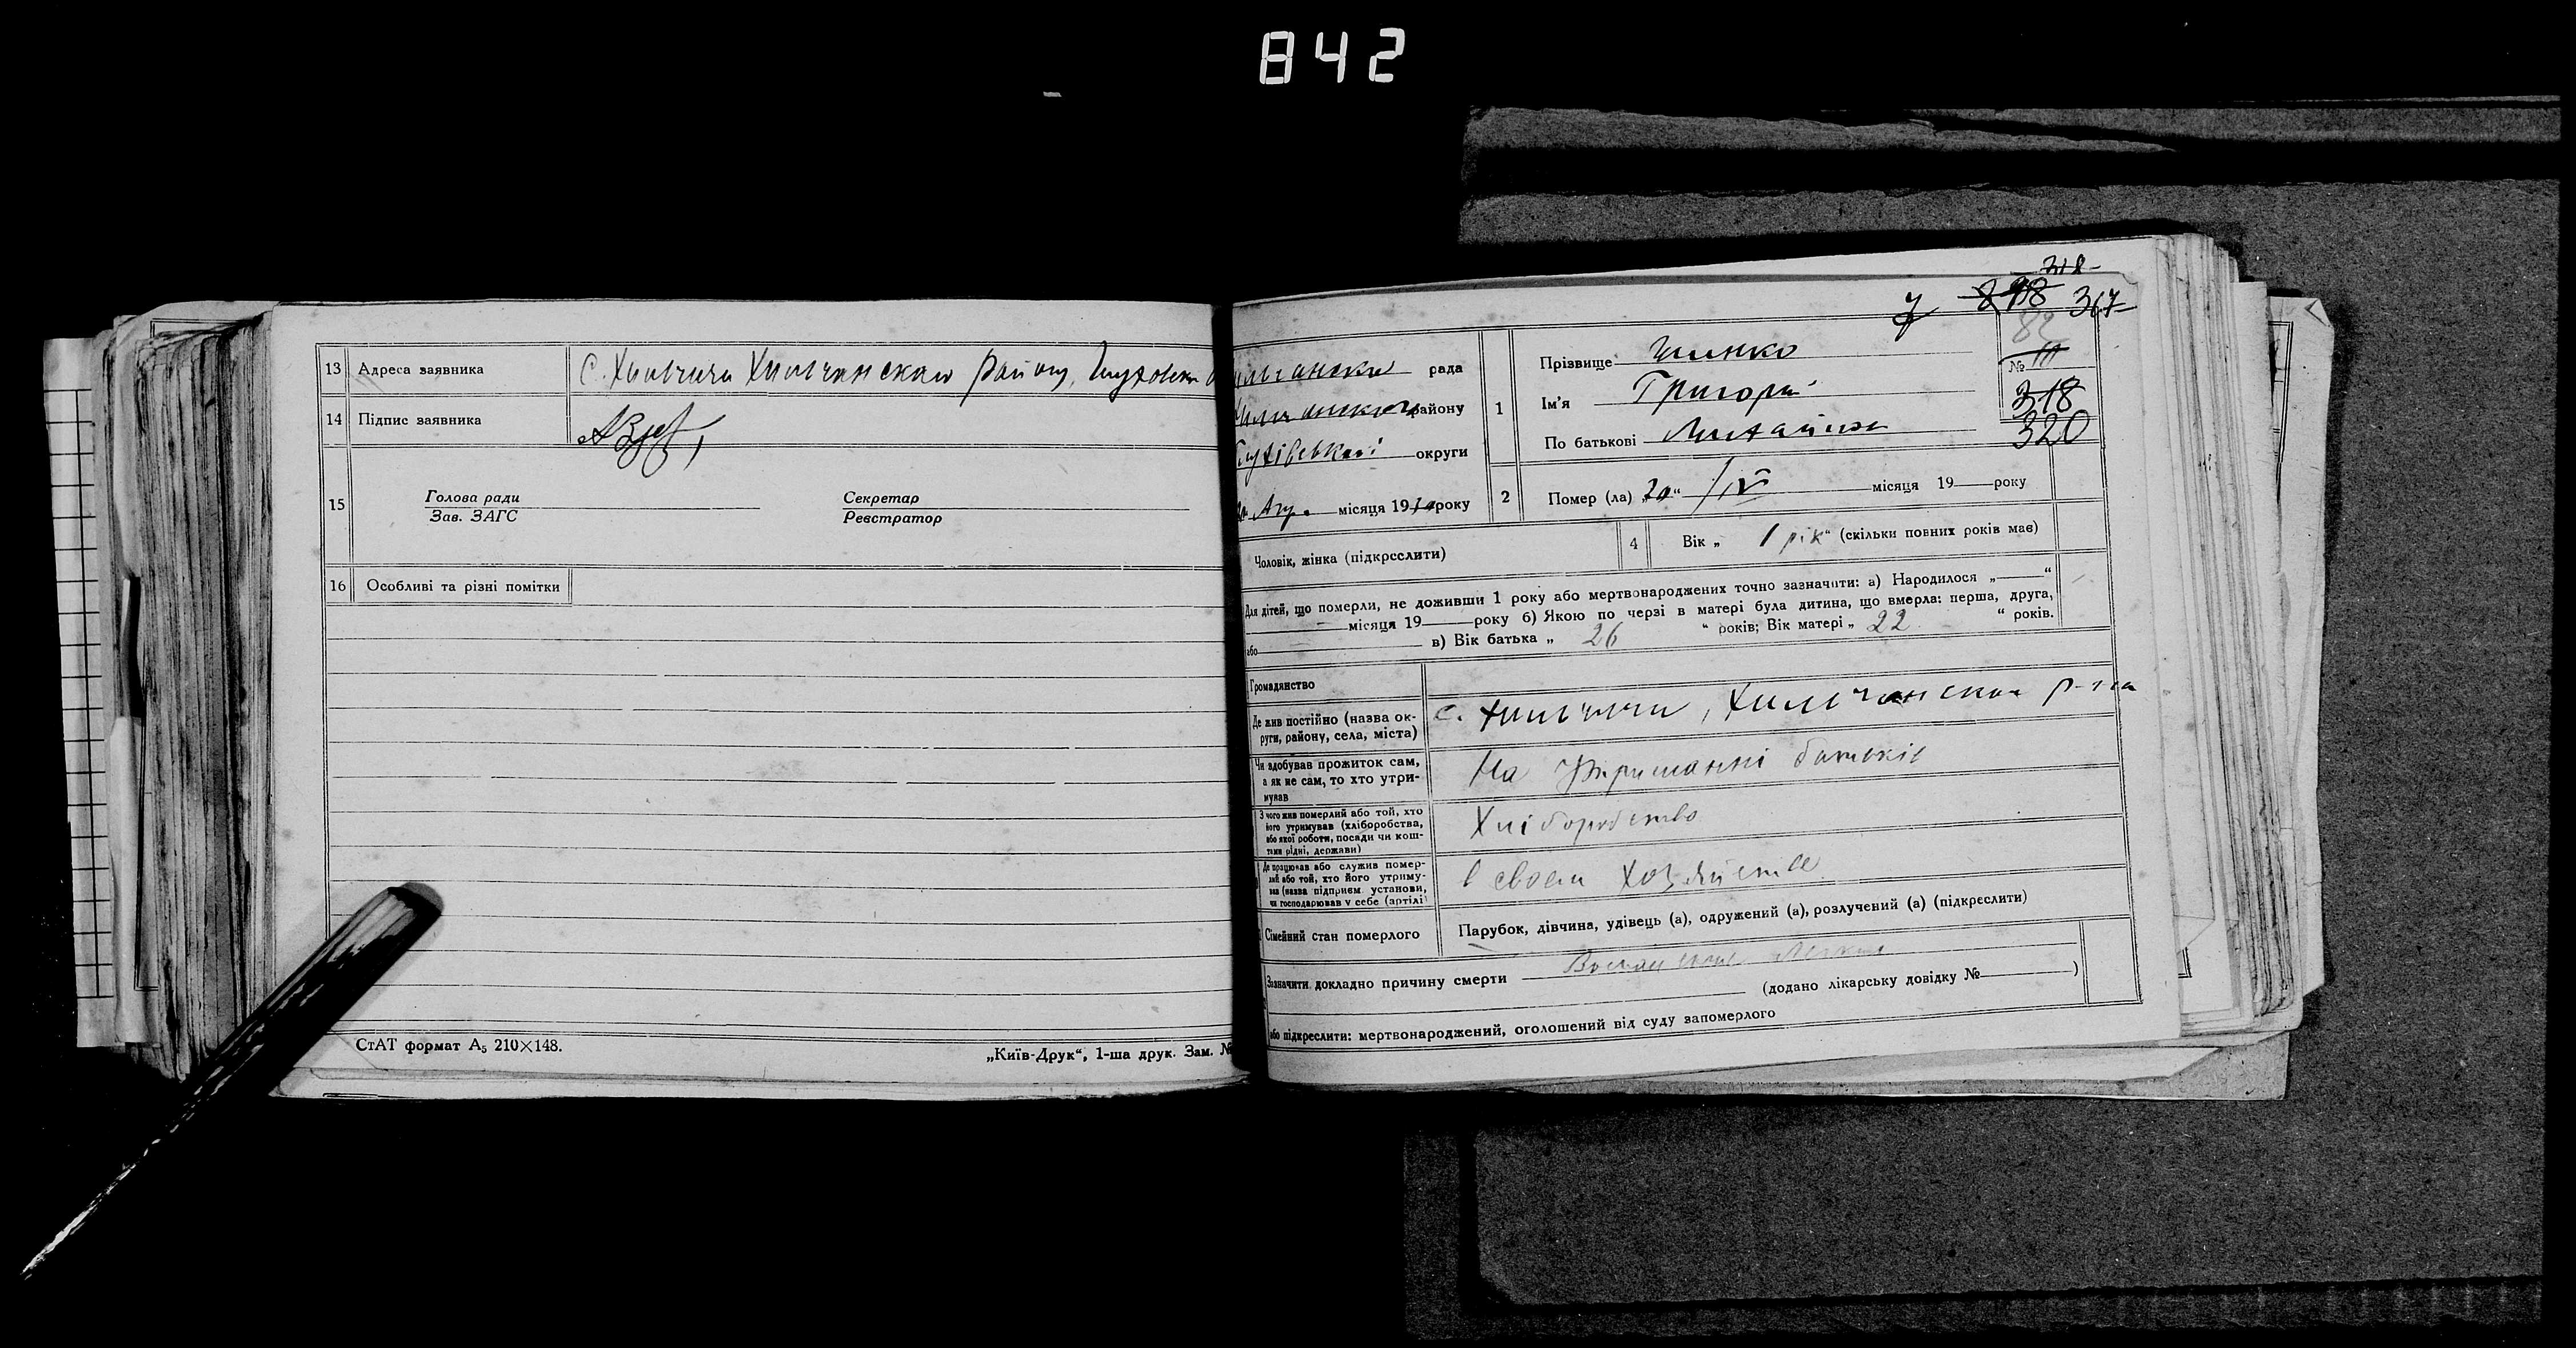 842
13 Адреса заявника С. Хильчичи Хильчанского району, Глуховск
14 Підпис заявника
15 Голова ради Секретар
Зав. ЗАГС Реєстратор
16 Особливі та різні помітки
СтАТ формат А₅ 210×148.
„Київ-Друк“, 1-ша друк. Зам. №
318
7 818 317
82
рада
району
Глухівської округи
місяця 19 року
1 Прізвище
Ім'я Григорій
По батькові Михайлов
№
318
320
2 Помер (ла) „20“ /IV місяця 19 року
Чоловік, жінка (підкреслити)
4 Вік „ 1 рік “ (скільки повних років має)
Для дітей, що померли, не доживши 1 року або мертвонароджених точно зазначити: а) Народилося „ “
місяця 19 року б) Якою по черзі в матері була дитина, що вмерла: перша, друга,
або в) Вік батька „ 26 “ років; Вік матері „ 22 “ років.
Громадянство
Де жив постійно (назва ок-
руги, району, села, міста)
с. Хильчичи, Хильчанского р-на
Чи здобував прожиток сам,
а як не сам, то хто утри-
мував
На утриманні батьків
З чого жив померлий або той, хто
його утримував (хліборобства,
або якої роботи, посади чи кош-
тами рідні, держави)
Хліборобство
Де працював або служив помер-
лий або той, хто його утриму-
вав (назва підприєм. установи,
чи господарював у себе (артілі)
в своем хозяйстве
Сімейний стан померлого Парубок, дівчина, удівець (а), одружений (а), розлучений (а) (підкреслити)
Зазначити докладно причину смерти Воспаление легких
(додано лікарську довідку № )
або підкреслити: мертвонароджений, оголошений від суду запомерлого